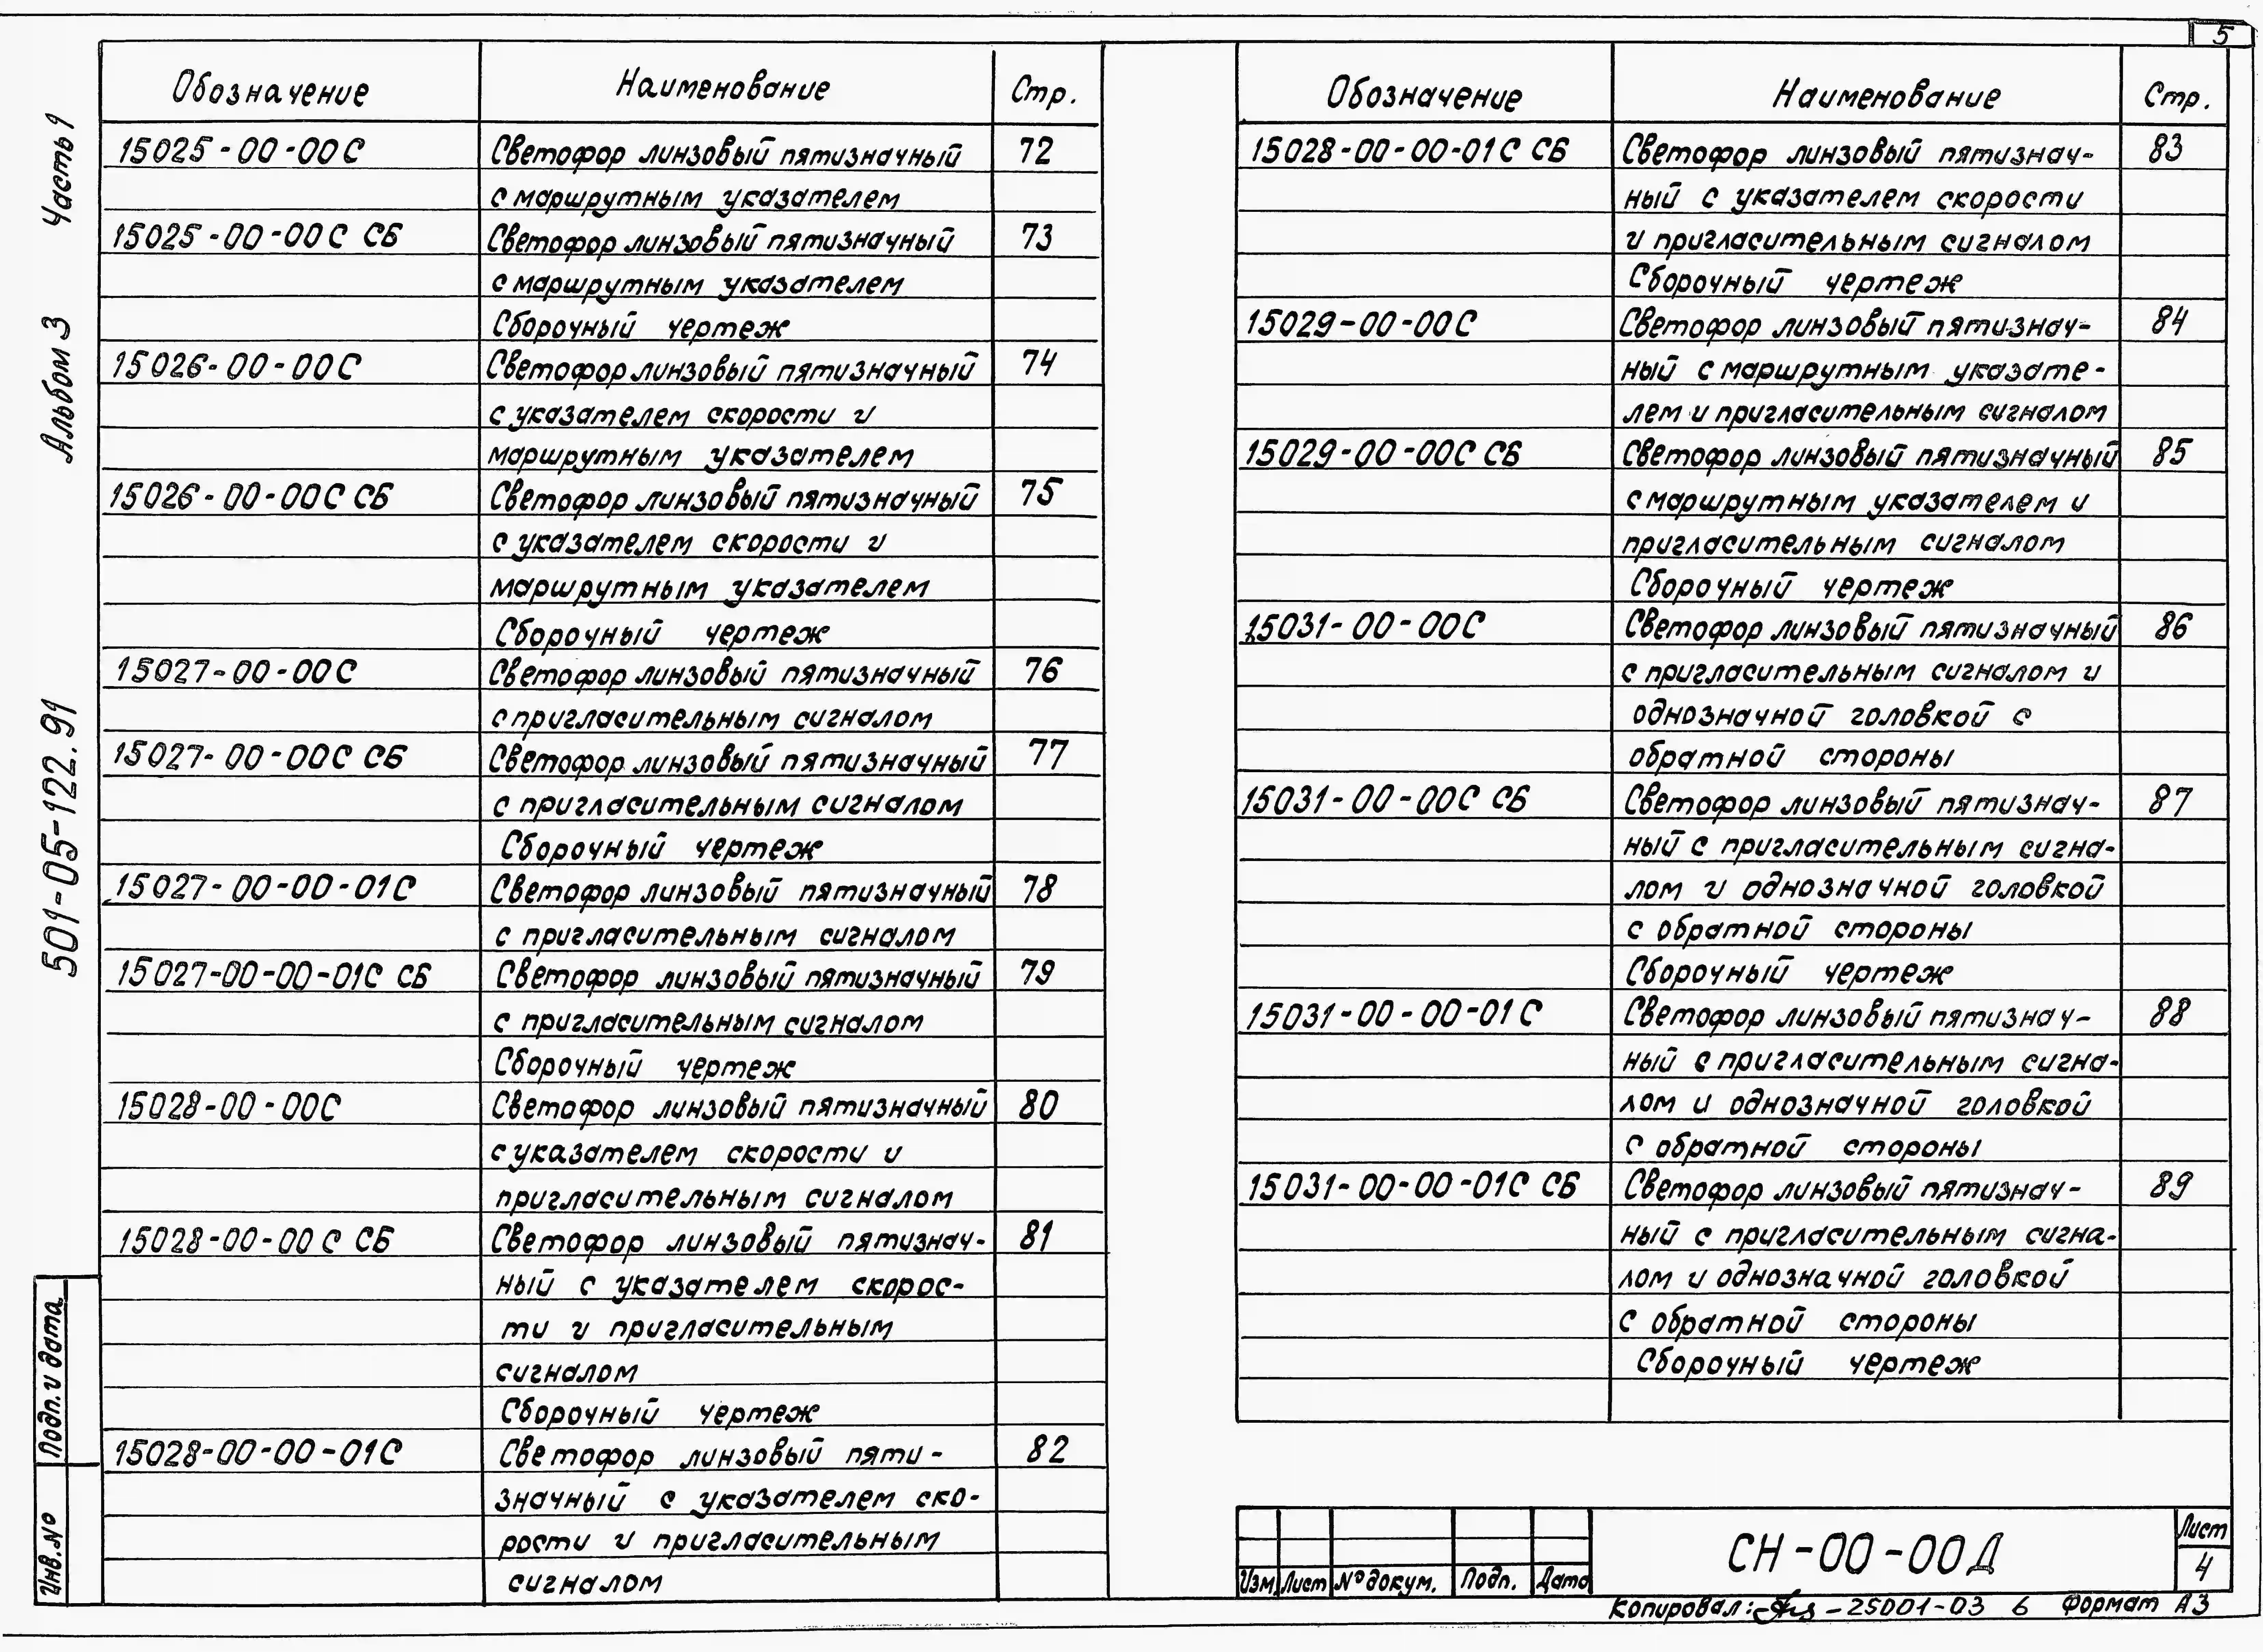 5
Часть 1
Альбом 3
501-05-122.91
Подп. и дата
Инв.№
Обозначение Наименование Стр.
15025-00-00С Светофор линзовый пятизначный 72
с маршрутным указателем
15025-00-00С СБ Светофор линзовый пятизначный 73
с маршрутным указателем
Сборочный чертеж
15026-00-00С Светофор линзовый пятизначный 74
с указателем скорости и
маршрутным указателем
15026-00-00С СБ Светофор линзовый пятизначный 75
с указателем скорости и
маршрутным указателем
Сборочный чертеж
15027-00-00С Светофор линзовый пятизначный 76
с пригласительным сигналом
15027-00-00С СБ Светофор линзовый пятизначный 77
с пригласительным сигналом
Сборочный чертеж
15027-00-00-01С Светофор линзовый пятизначный 78
с пригласительным сигналом
15027-00-00-01С СБ Светофор линзовый пятизначный 79
с пригласительным сигналом
Сборочный чертеж
15028-00-00С Светофор линзовый пятизначный 80
с указателем скорости и
пригласительным сигналом
15028-00-00С СБ Светофор линзовый пятизнач- 81
ный с указателем скорос-
ти и пригласительным
сигналом
Сборочный чертеж
15028-00-00-01С Светофор линзовый пяти- 82
значный с указателем ско-
рости и пригласительным
сигналом
Обозначение Наименование Стр.
15028-00-00-01С СБ Светофор линзовый пятизнач- 83
ный с указателем скорости
и пригласительным сигналом
Сборочный чертеж
15029-00-00С Светофор линзовый пятизнач- 84
ный с маршрутным указате-
лем и пригласительным сигналом
15029-00-00С СБ Светофор линзовый пятизначный 85
с маршрутным указателем и
пригласительным сигналом
Сборочный чертеж
15031-00-00С Светофор линзовый пятизначный 86
с пригласительным сигналом и
однозначной головкой с
обратной стороны
15031-00-00С СБ Светофор линзовый пятизнач- 87
ный с пригласительным сигна-
лом и однозначной головкой
с обратной стороны
Сборочный чертеж
15031-00-00-01С Светофор линзовый пятизнач- 88
ный с пригласительным сигна-
лом и однозначной головкой
с обратной стороны
15031-00-00-01С СБ Светофор линзовый пятизнач- 89
ный с пригласительным сигна-
лом и однозначной головкой
с обратной стороны
Сборочный чертеж
Изм. Лист №докум. Подп. Дата
СН-00-00Д
Лист
4
Копировал: -25001-03 6 Формат А3